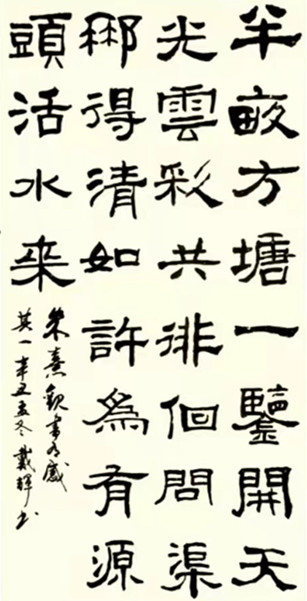 半畝方塘一鑒開天
光雲彩共徘徊問渠
那得清如許爲有源
頭活水来
朱熹觀書有感
其一辛丑孟冬戴輝书